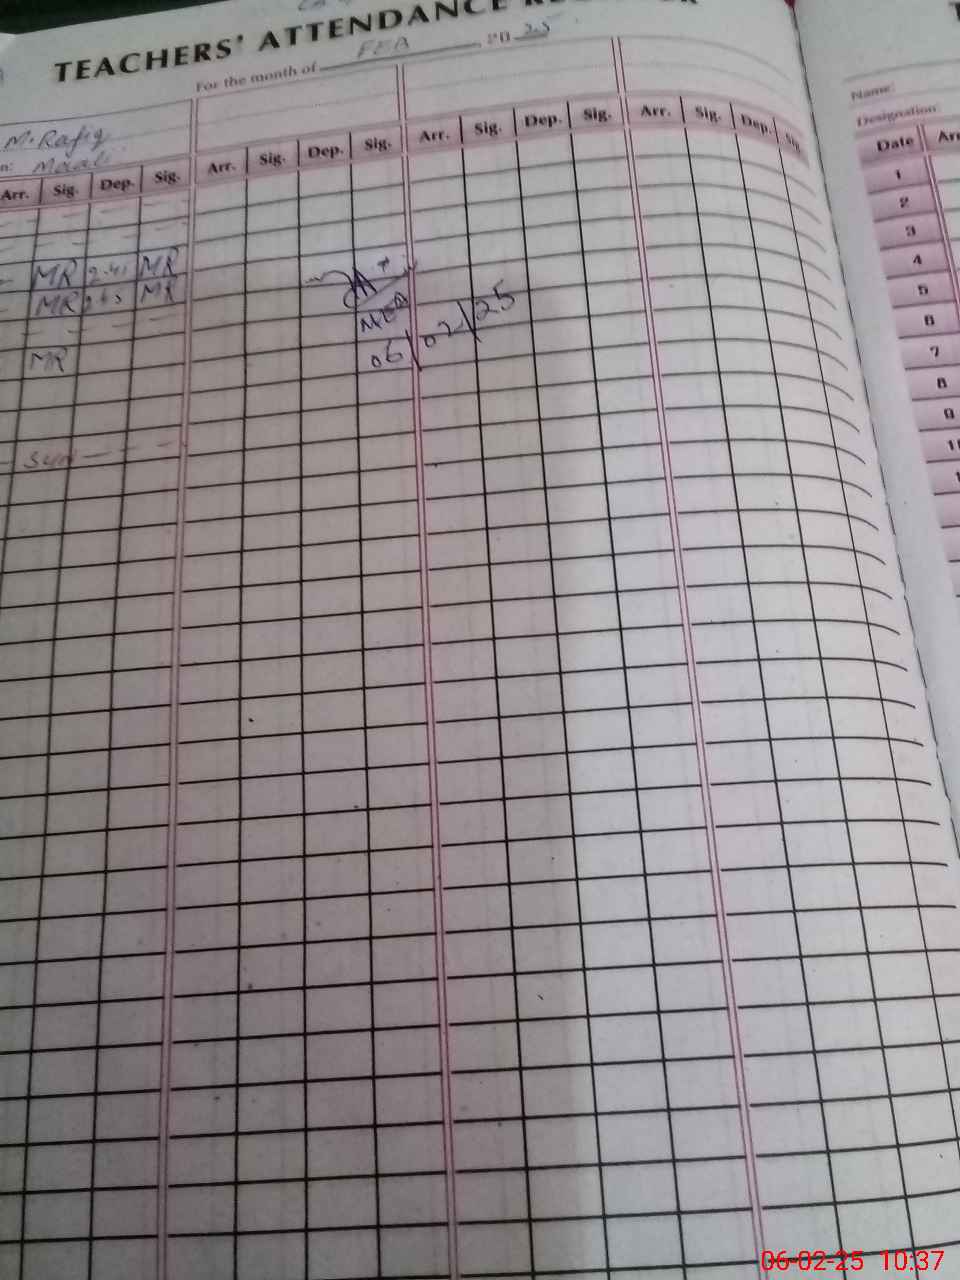 TEACHERS' ATTENDANCE RE
For the month of FEB 2025
M. Rafiq
n: Maali
Arr. Sig. Dep. Sig. Arr. Sig. Dep. Sig. Arr. Sig. Dep. Sig. Arr. Sig. Dep. Sig.
MR 2.41 MR
MR MR
MR
06/02/25
Sun
Name:
Designation:
Date Arr
1
2
3
4
5
6
7
8
9
06-02-25 10:37